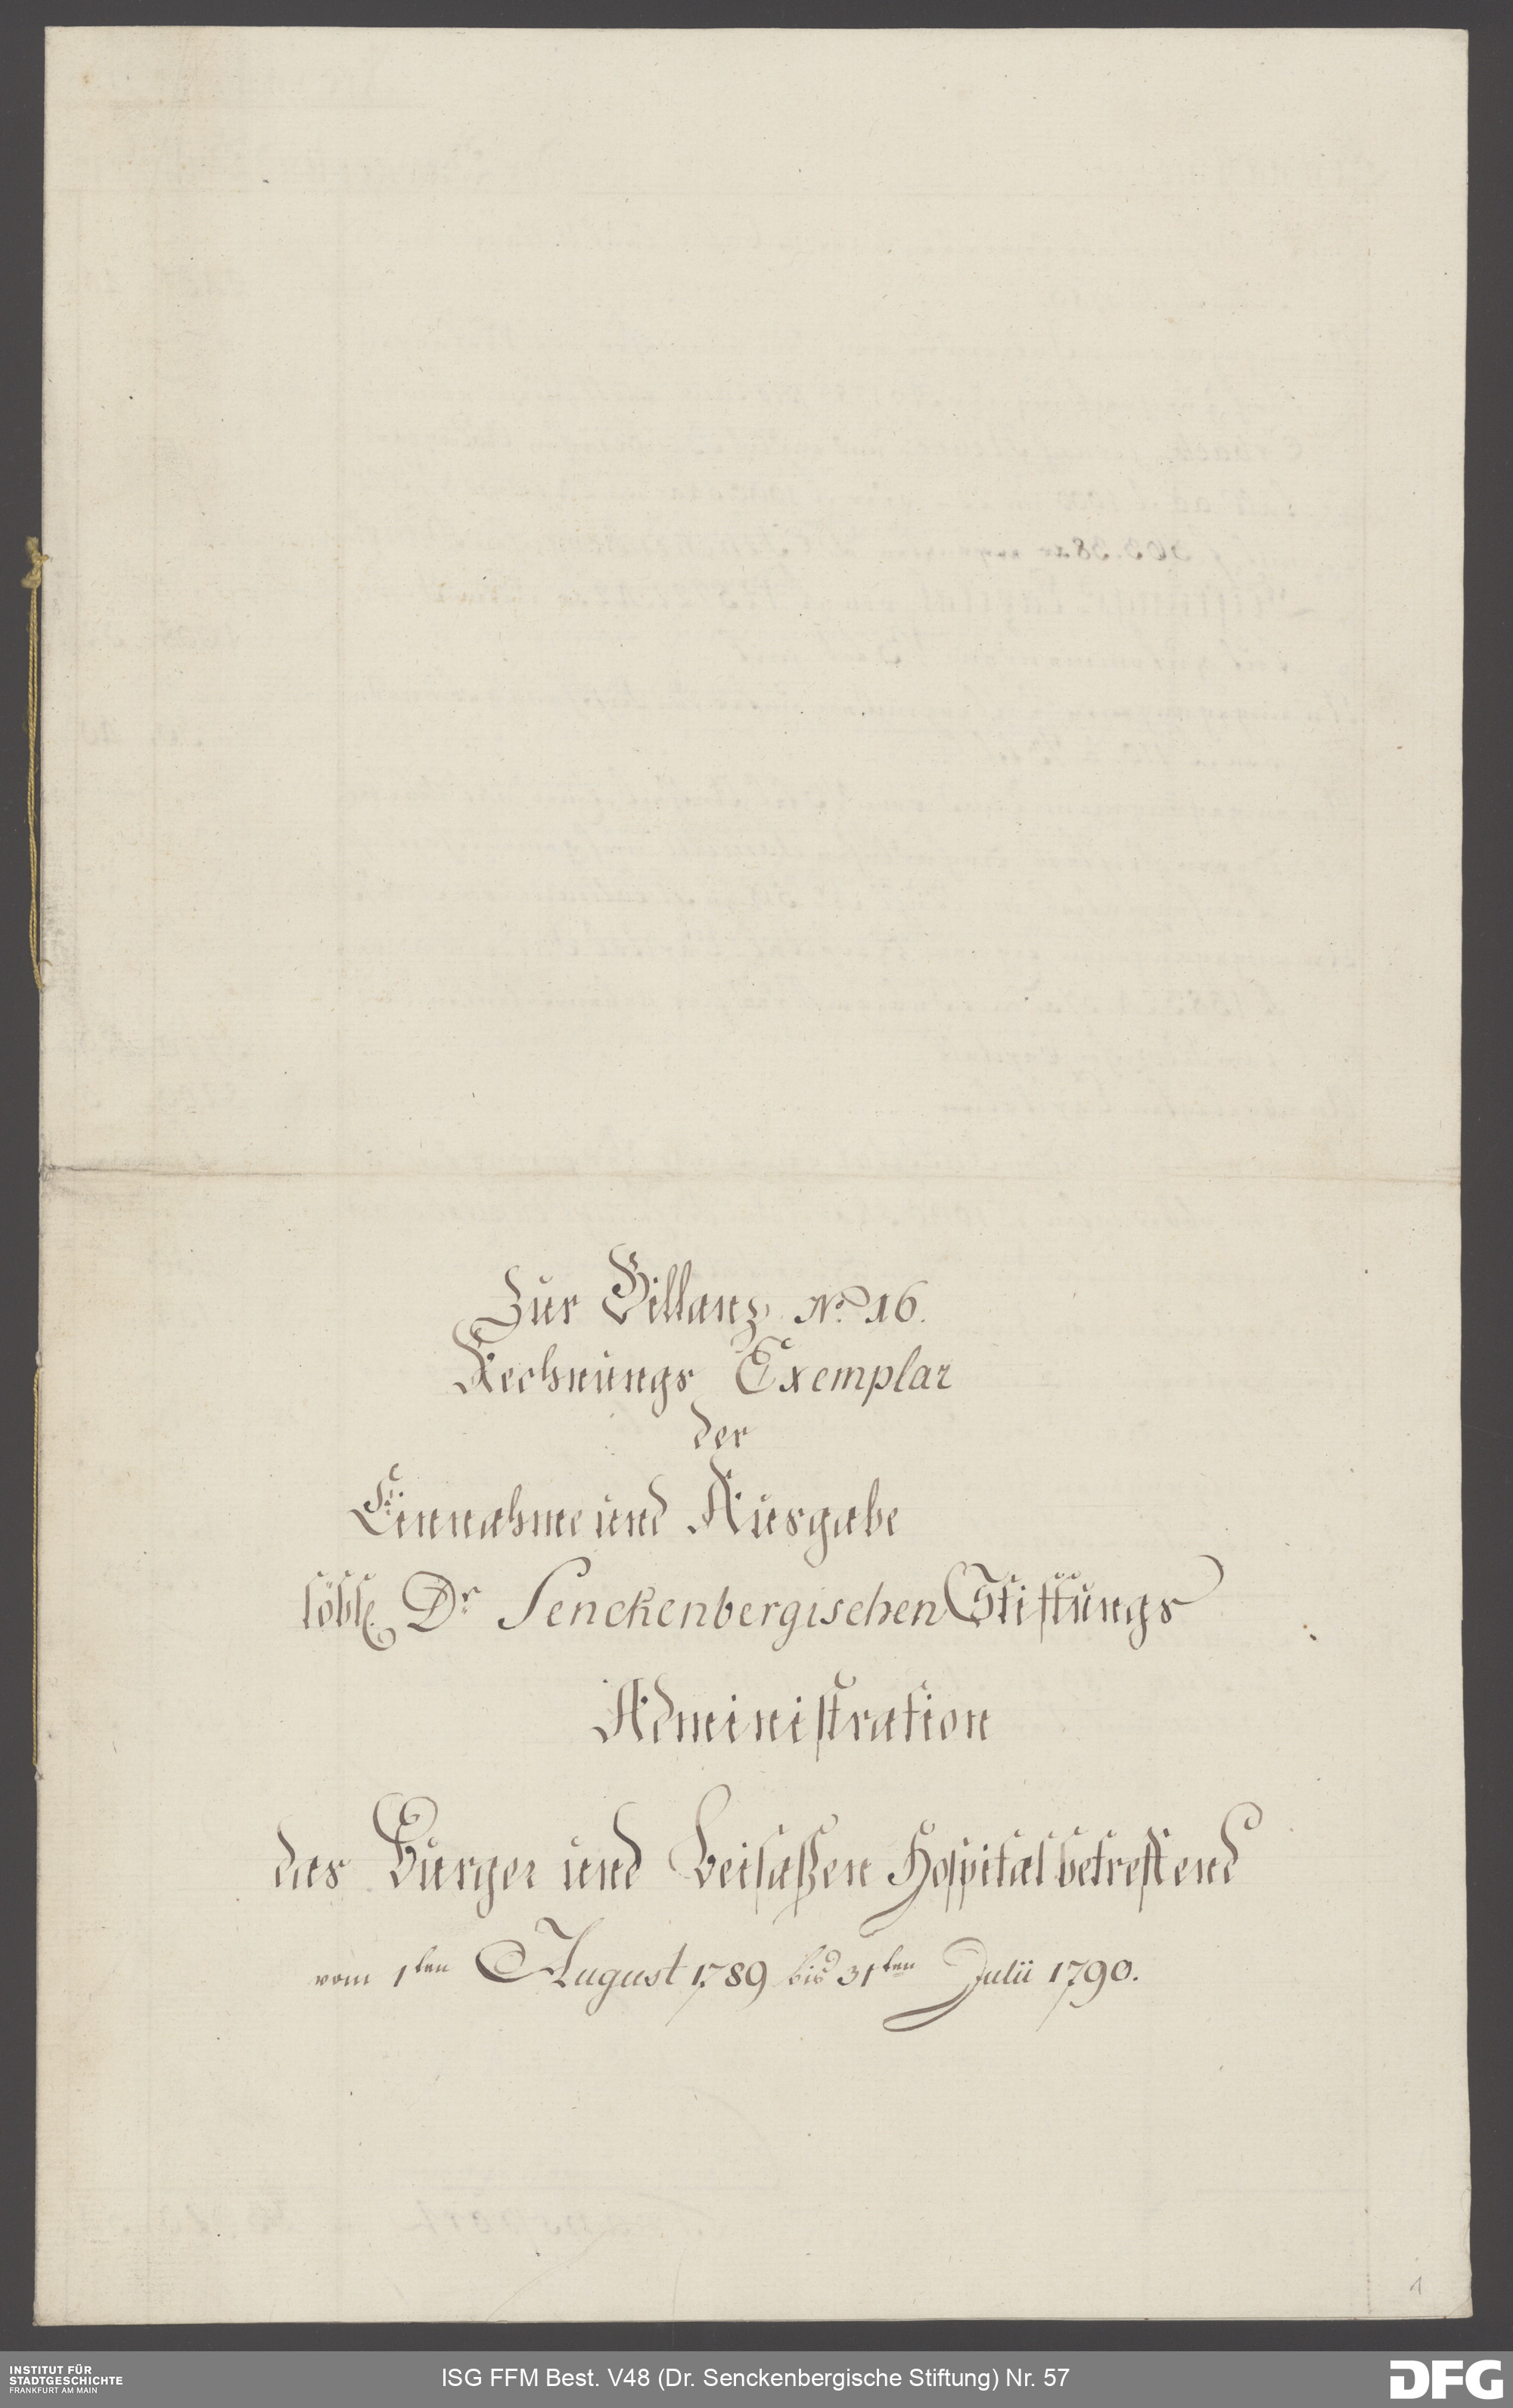 Zur Billanz No. 16.
Rechnungs Exemplar
der
Einnahme und Ausgabe
löbl. Dr. Senckenbergischen Stiftungs
Administration
das Burger und Beisaßen Hospital betreffend
vom 1ten August 1789 bis 31ten Julii 1790.
1
INSTITUT FÜR
STADTGESCHICHTE
FRANKFURT AM MAIN
ISG FFM Best. V48 (Dr. Senckenbergische Stiftung) Nr. 57
DFG